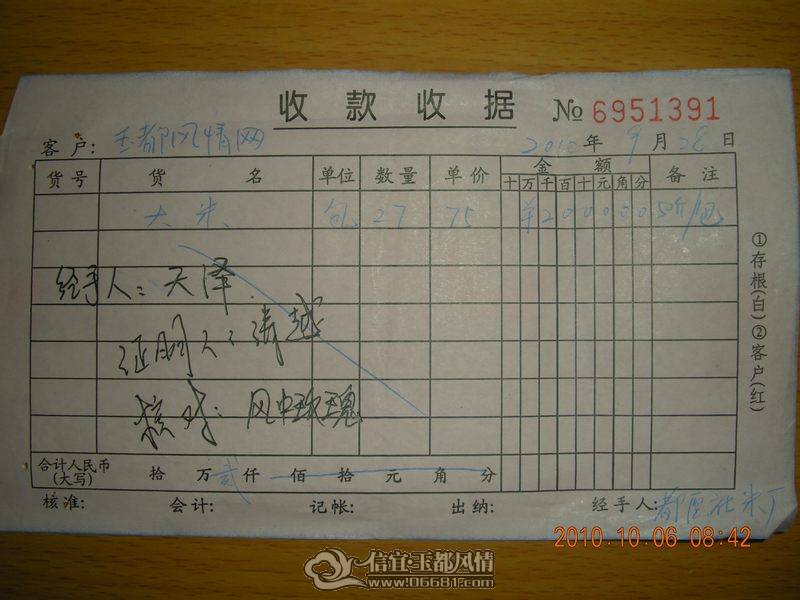 收款收据 № 6951391
客户: 玉都风情网 2010年9月28日
货号 货名 单位 数量 单价 金额 备注
十 万 千 百 十 元 角 分
大米 包 27 75 ¥200000 50斤/包
经手人: 天泽
证明人: 清越
核对: 风中玫瑰
①存根(白)②客户(红)
合计人民币(大写) 拾 万 贰仟 佰 拾 元 角 分
核准: 会计: 记帐: 出纳: 经手人: 米厂
2010.10.06 08:42
信宜玉都风情
www.06681.com